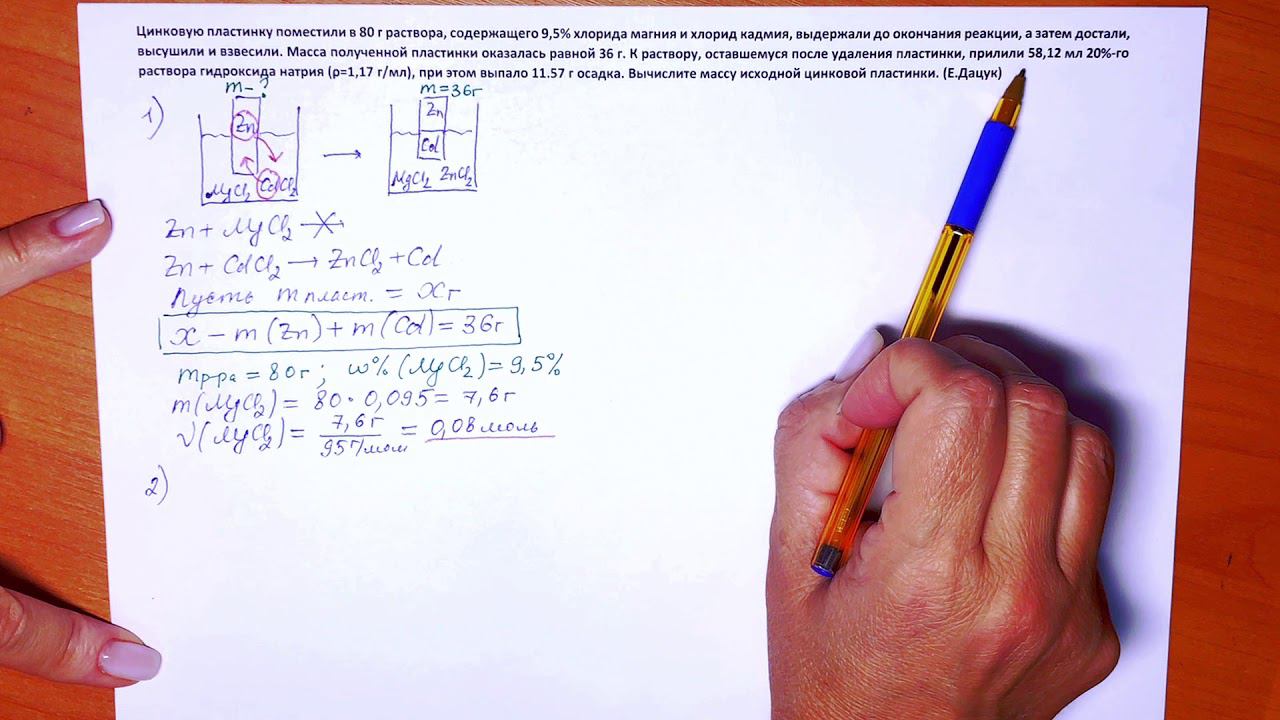 Цинковую пластинку поместили в 80 г раствора, содержащего 9,5% хлорида магния и хлорид кадмия, выдержали до окончания реакции, а затем достали,
высушили и взвесили. Масса полученной пластинки оказалась равной 36 г. К раствору, оставшемуся после удаления пластинки, прилили 58,12 мл 20%-го
раствора гидроксида натрия (ρ=1,17 г/мл), при этом выпало 11.57 г осадка. Вычислите массу исходной цинковой пластинки. (Е.Дацук)
1)
m - ?
m = 36г
Zn
Zn
Cd
MgCl2 CdCl2
→
MgCl2 ZnCl2
Zn + MgCl2 ↛
Zn + CdCl2 → ZnCl2 + Cd
Пусть m пласт. = x г
x − m(Zn) + m(Cd) = 36г
m р-ра = 80г ; w%(MgCl2) = 9,5%
m(MgCl2) = 80 · 0,095 = 7,6 г
ν(MgCl2) = 7,6 г / 95 г/моль = 0,08 моль
2)